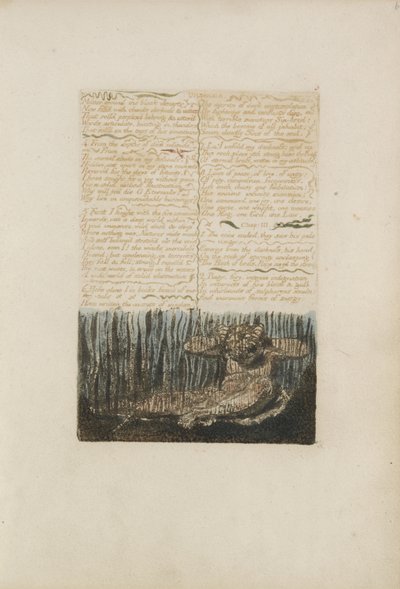 Muster around the bleak desarts
Now fill'd with clouds, darkness & waters
That roll'd perplex'd labring & utter'd
Words articulate, bursting in thunders
That roll'd on the tops of his mountains
4: From the depths of dark solitude.
From
The eternal abode in my holiness,
Hidden set apart in my stern counsels
Reserv'd for the days of futurity,
I have sought for a joy without pain,
For a solid without fluctuation
Why will you die O Eternals?
Why live in unquenchable burnings?
5 First I fought with the fire; consum'd
Inwards, into a deep world within:
A void immense, wild dark & deep,
Where nothing was; Natures wide womb
And self balanc'd stretch'd o'er the void
I alone, even I! the winds merciless
Bound; but condensing, in torrents
They fall & fall; strong I repell'd
The vast waves, & arose on the waters
A wide world of solid obstruction
6. Here alone I in books formd of me-
-tals
Have written the secrets of wisdom
The secrets of dark contemplation
By fightings and conflicts dire,
With terrible monsters Sin-bred:
Which the bosoms of all inhabit;
Seven deadly Sins of the soul.
7. Lo! I unfold my darkness: and on
This rock, place with strong hand the Book
Of eternal brass, written in my solitude.
8. Laws of peace, of love, of unity:
Of pity, compassion, forgiveness.
Let each chuse one habitation:
His ancient infinite mansion:
One command, one joy, one desire,
One curse, one weight, one measure
One King, one God, one Law.
Chap: III.
1. The voice ended, they saw his pale
visage
Emerge from the darkness; his hand
On the rock of eternity unclasping
The Book of brass. Rage siez'd the strong
2. Rage, fury, intense indignation
In cataracts of fire blood & gall
In whirlwinds of sulphurous smoke:
And enormous forms of energy;